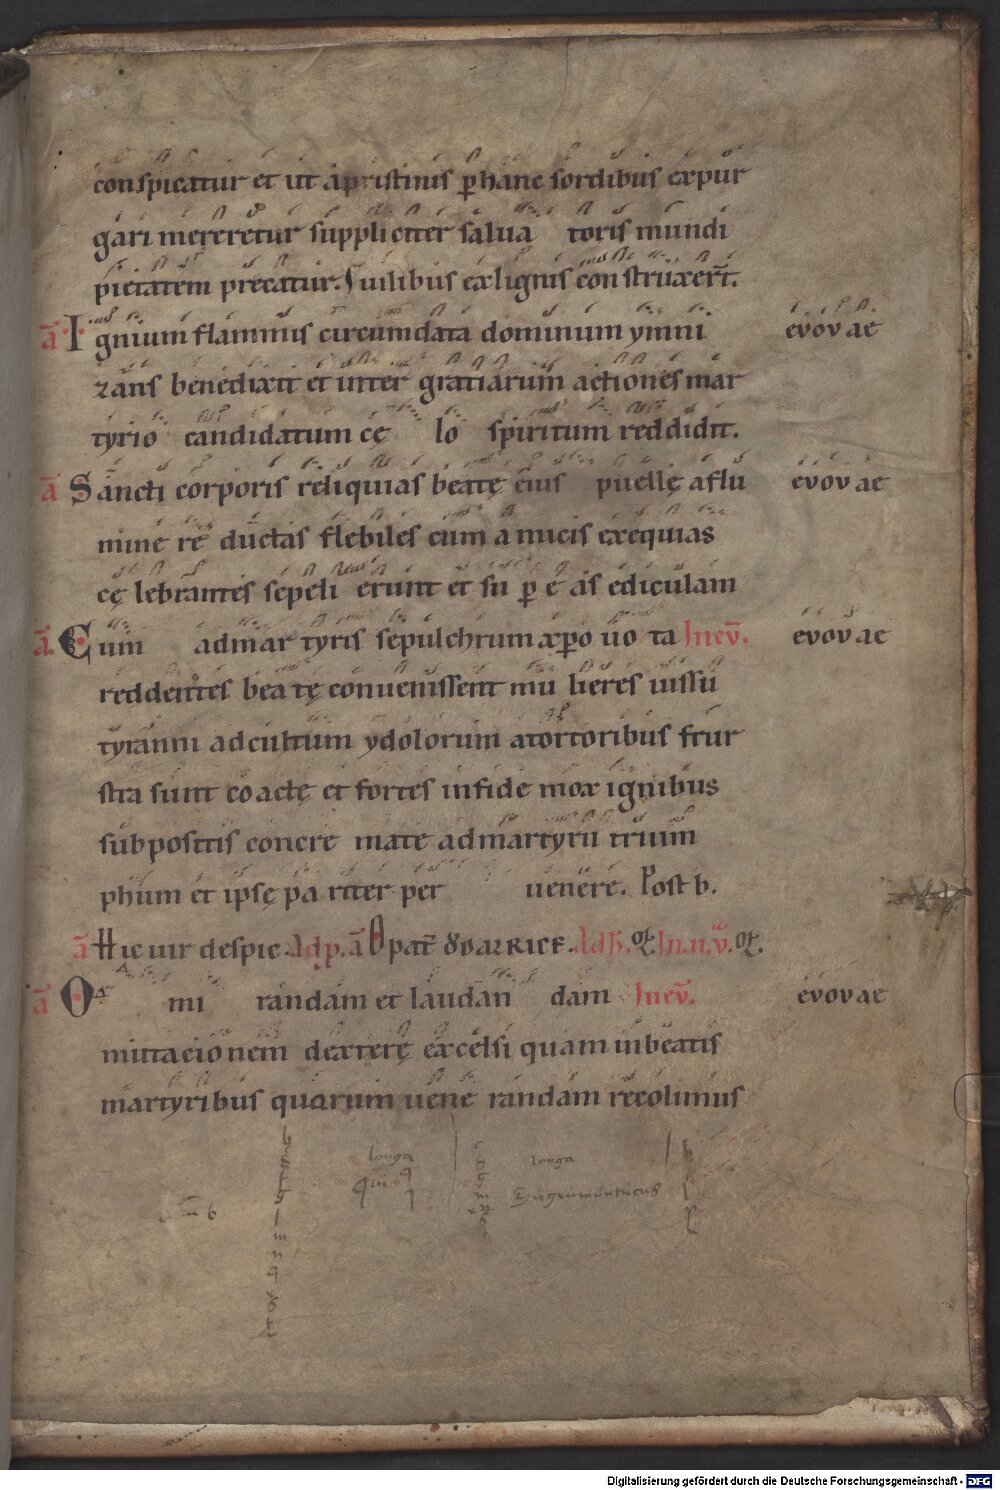 conspicatur et ut a pristinis p hanc sordibus expur
gari mereretur suppliciter salua toris mundi
pietatem precatur. S uilibus ex lignis con struxer̄t.
ā I gnium flammis circumdata dominum ymni evovae
zans benedixit et inter gratiarum actiones mar
tyrio candidatum cę lo spiritum reddidit.
ā Sancti corporis reliquias beatę eius puellę a flu evovae
mine re ductas flebiles cum amicis exequias
cę lebrantes sepeli erunt et su p e as ediculam
ā Cum ad mar tyris sepulchrum a xp̄o uo ta In ev̄. evovae
reddentes bea tę conuenissent mu lieres iussu
tyranni ad cultum ydolorum a tortoribus frur
stra sunt coactę et fortes in fide mox ignibus
subpositis concre mate ad martyrū trium
phum et ipsę pa riter per uenere. Post b.
ā Hic uir despic. Ad p. ā O pat̄
ā O mi randam et laudan dam In ev̄. evovae
mittacionem dexterę excelsi quam in beatis
martyribus quorum uene randam recolimus
longa longa
qui